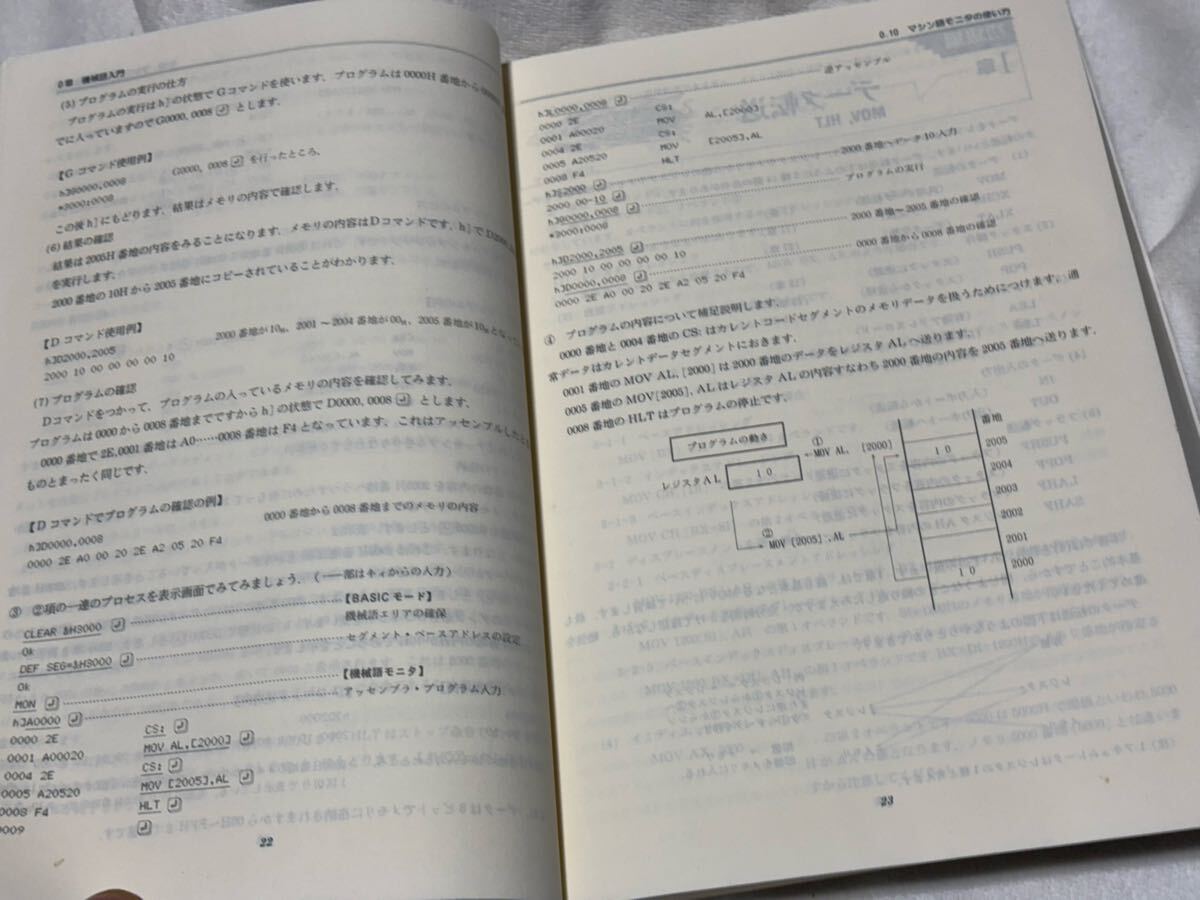 0章 機械語入門
(5) プログラムの実行の仕方
プログラムの実行はh]の状態でGコマンドを使います．プログラムは0000H番地から0008
でに入っていますのでG0000, 0008↵とします．
【Gコマンド使用例】
h]G0000,0008 G0000, 0008↵を行ったところ．
*2000:0008
この後h]にもどります．結果はメモリの内容で確認します．
(6) 結果の確認
結果は2005H番地の内容をみることになります．メモリの内容はDコマンドです．h]でD2000,
を実行します．
2000番地の10Hから2005番地にコピーされていることがわかります．
【Dコマンド使用例】
h]D2000,2005 2000番地が10H，2001～2004番地が00H，2005番地が10Hとなっ
2000 10 00 00 00 00 10
(7) プログラムの確認
Dコマンドをつかって，プログラムの入っているメモリの内容を確認してみます．
プログラムは0000から0008番地までですからh]の状態でD0000, 0008↵とします．
0000番地で2E, 0001番地はA0……0008番地はF4となっています．これはアッセンブルしたと
ものとまったく同じです．
【Dコマンドでプログラムの確認の例】
h]D0000,0008 0000番地から0008番地までのメモリの内容
0000 2E A0 00 20 2E A2 05 20 F4
③ ②項の一連のプロセスを表示画面でみてみましょう．（──部はキィからの入力）
【BASICモード】
CLEAR &H3000 ↵ 機械語エリアの確保
Ok
DEF SEG=&H3000 ↵ セグメント・ベースアドレスの設定
Ok
MON ↵ 【機械語モニタ】
h]A0000 ↵ アッセンブラ・プログラム入力
0000 2E CS: ↵
0001 A00020 MOV AL,[2000] ↵
0004 2E CS: ↵
0005 A20520 MOV [2005],AL ↵
0008 F4 HLT ↵
0009 ↵
22
0.10 マシン語モニタの使い方
h]L0000,0008 ↵ 逆アッセンブル
0000 2E CS:
0001 A00020 MOV AL,[2000]
0004 2E CS:
0005 A20520 MOV [2005],AL
0008 F4 HLT
h]S2000 ↵ 2000番地へデータ10入力
2000 00-10 ↵
h]G0000,0008 ↵ プログラムの実行
*2000:0008
h]D2000,2005 ↵ 2000番地～2005番地の確認
2000 10 00 00 00 00 10
h]D0000,0008 ↵ 0000番地から0008番地の確認
0000 2E A0 00 20 2E A2 05 20 F4
④ プログラムの内容について補足説明します．
0000番地と0004番地のCS: はカレントコードセグメントのメモリデータを扱うためにつけます．通
常データはカレントデータセグメントにおきます．
0001番地のMOV AL, [2000]は2000番地のデータをレジスタALへ送ります．
0005番地のMOV[2005], ALはレジスタALの内容すなわち2000番地の内容を2005番地へ送ります．
0008番地のHLTはプログラムの停止です．
プログラムの動き
① ←MOV AL, [2000]
レジスタAL 10
② →MOV [2005], AL
番地
10 2005
2004
2003
2002
2001
10 2000
23